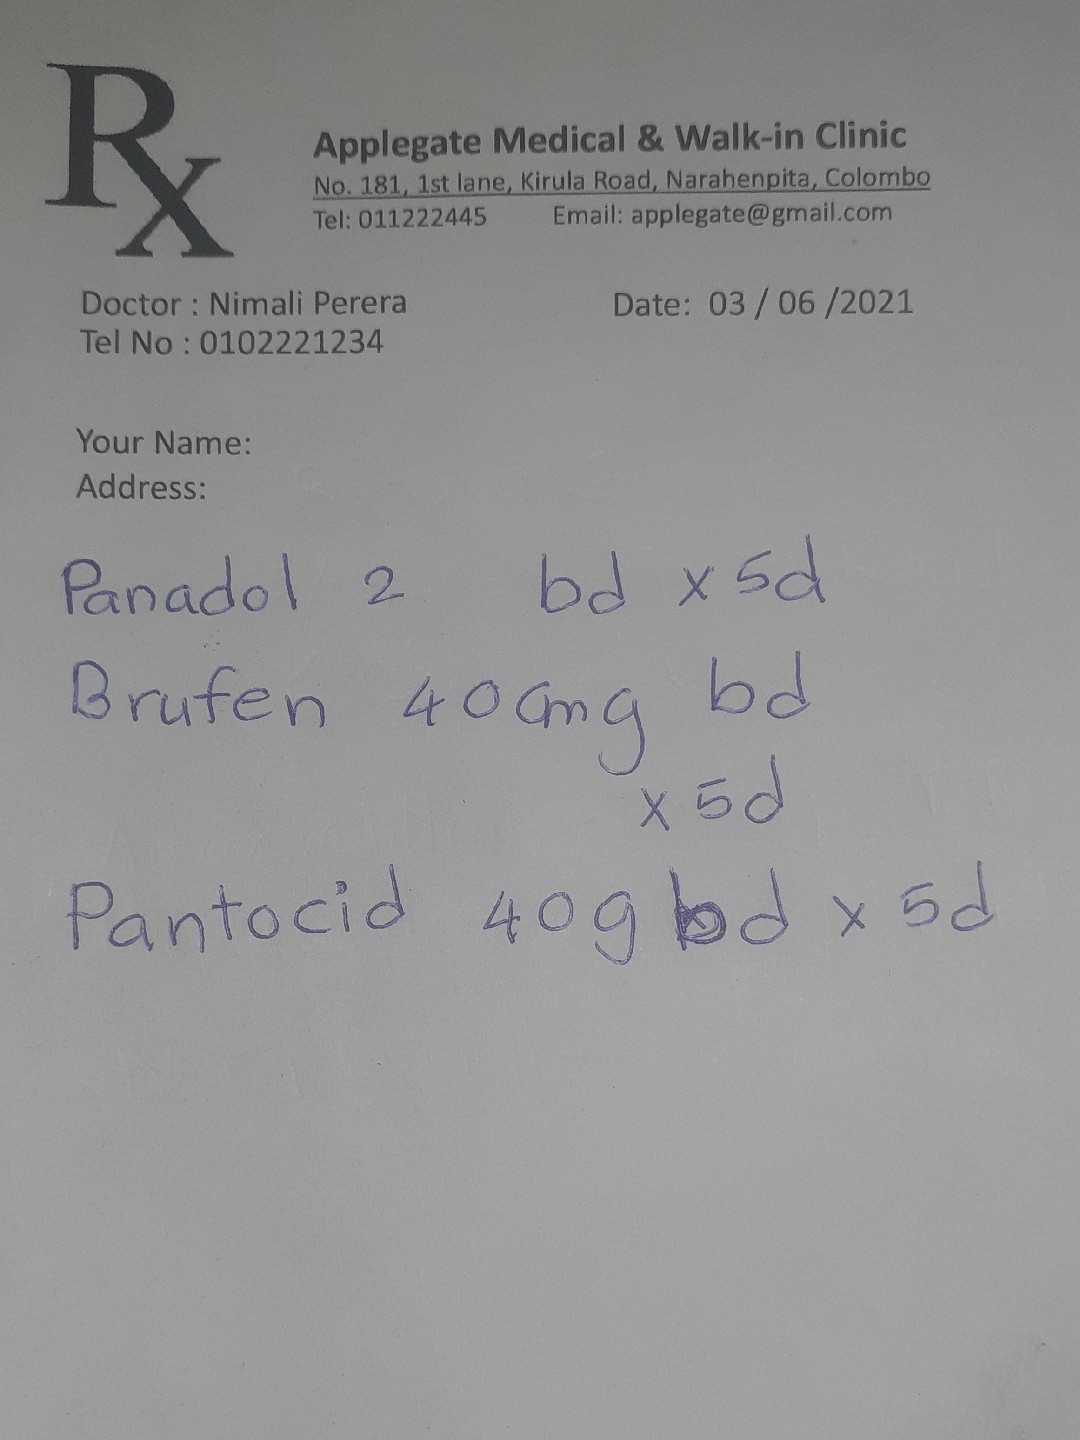 Rx
Applegate Medical & Walk-in Clinic
No. 181, 1st lane, Kirula Road, Narahenpita, Colombo
Tel: 011222445 Email: applegate@gmail.com
Doctor : Nimali Perera Date: 03 / 06 /2021
Tel No : 0102221234
Your Name:
Address:
Panadol 2 bd x 5d
Brufen 400mg bd
x 5d
Pantocid 40g bd x 5d